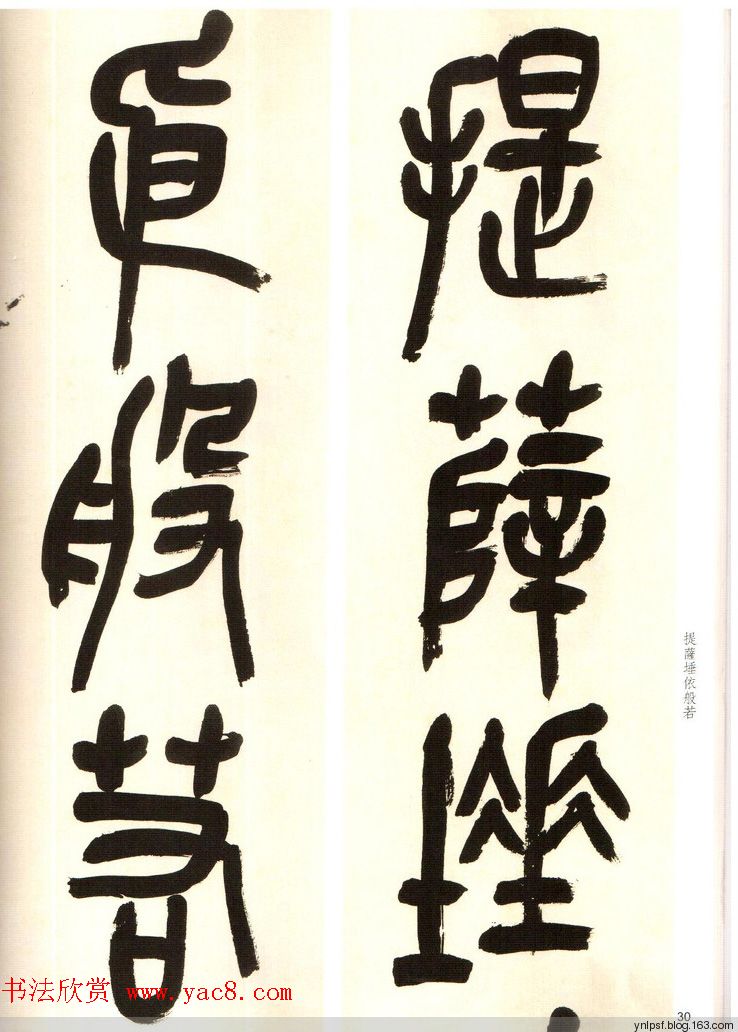 提薩埵
依般若
提薩埵依般若
30
书法欣赏 www.yac8.com
ynlpsf.blog.163.com